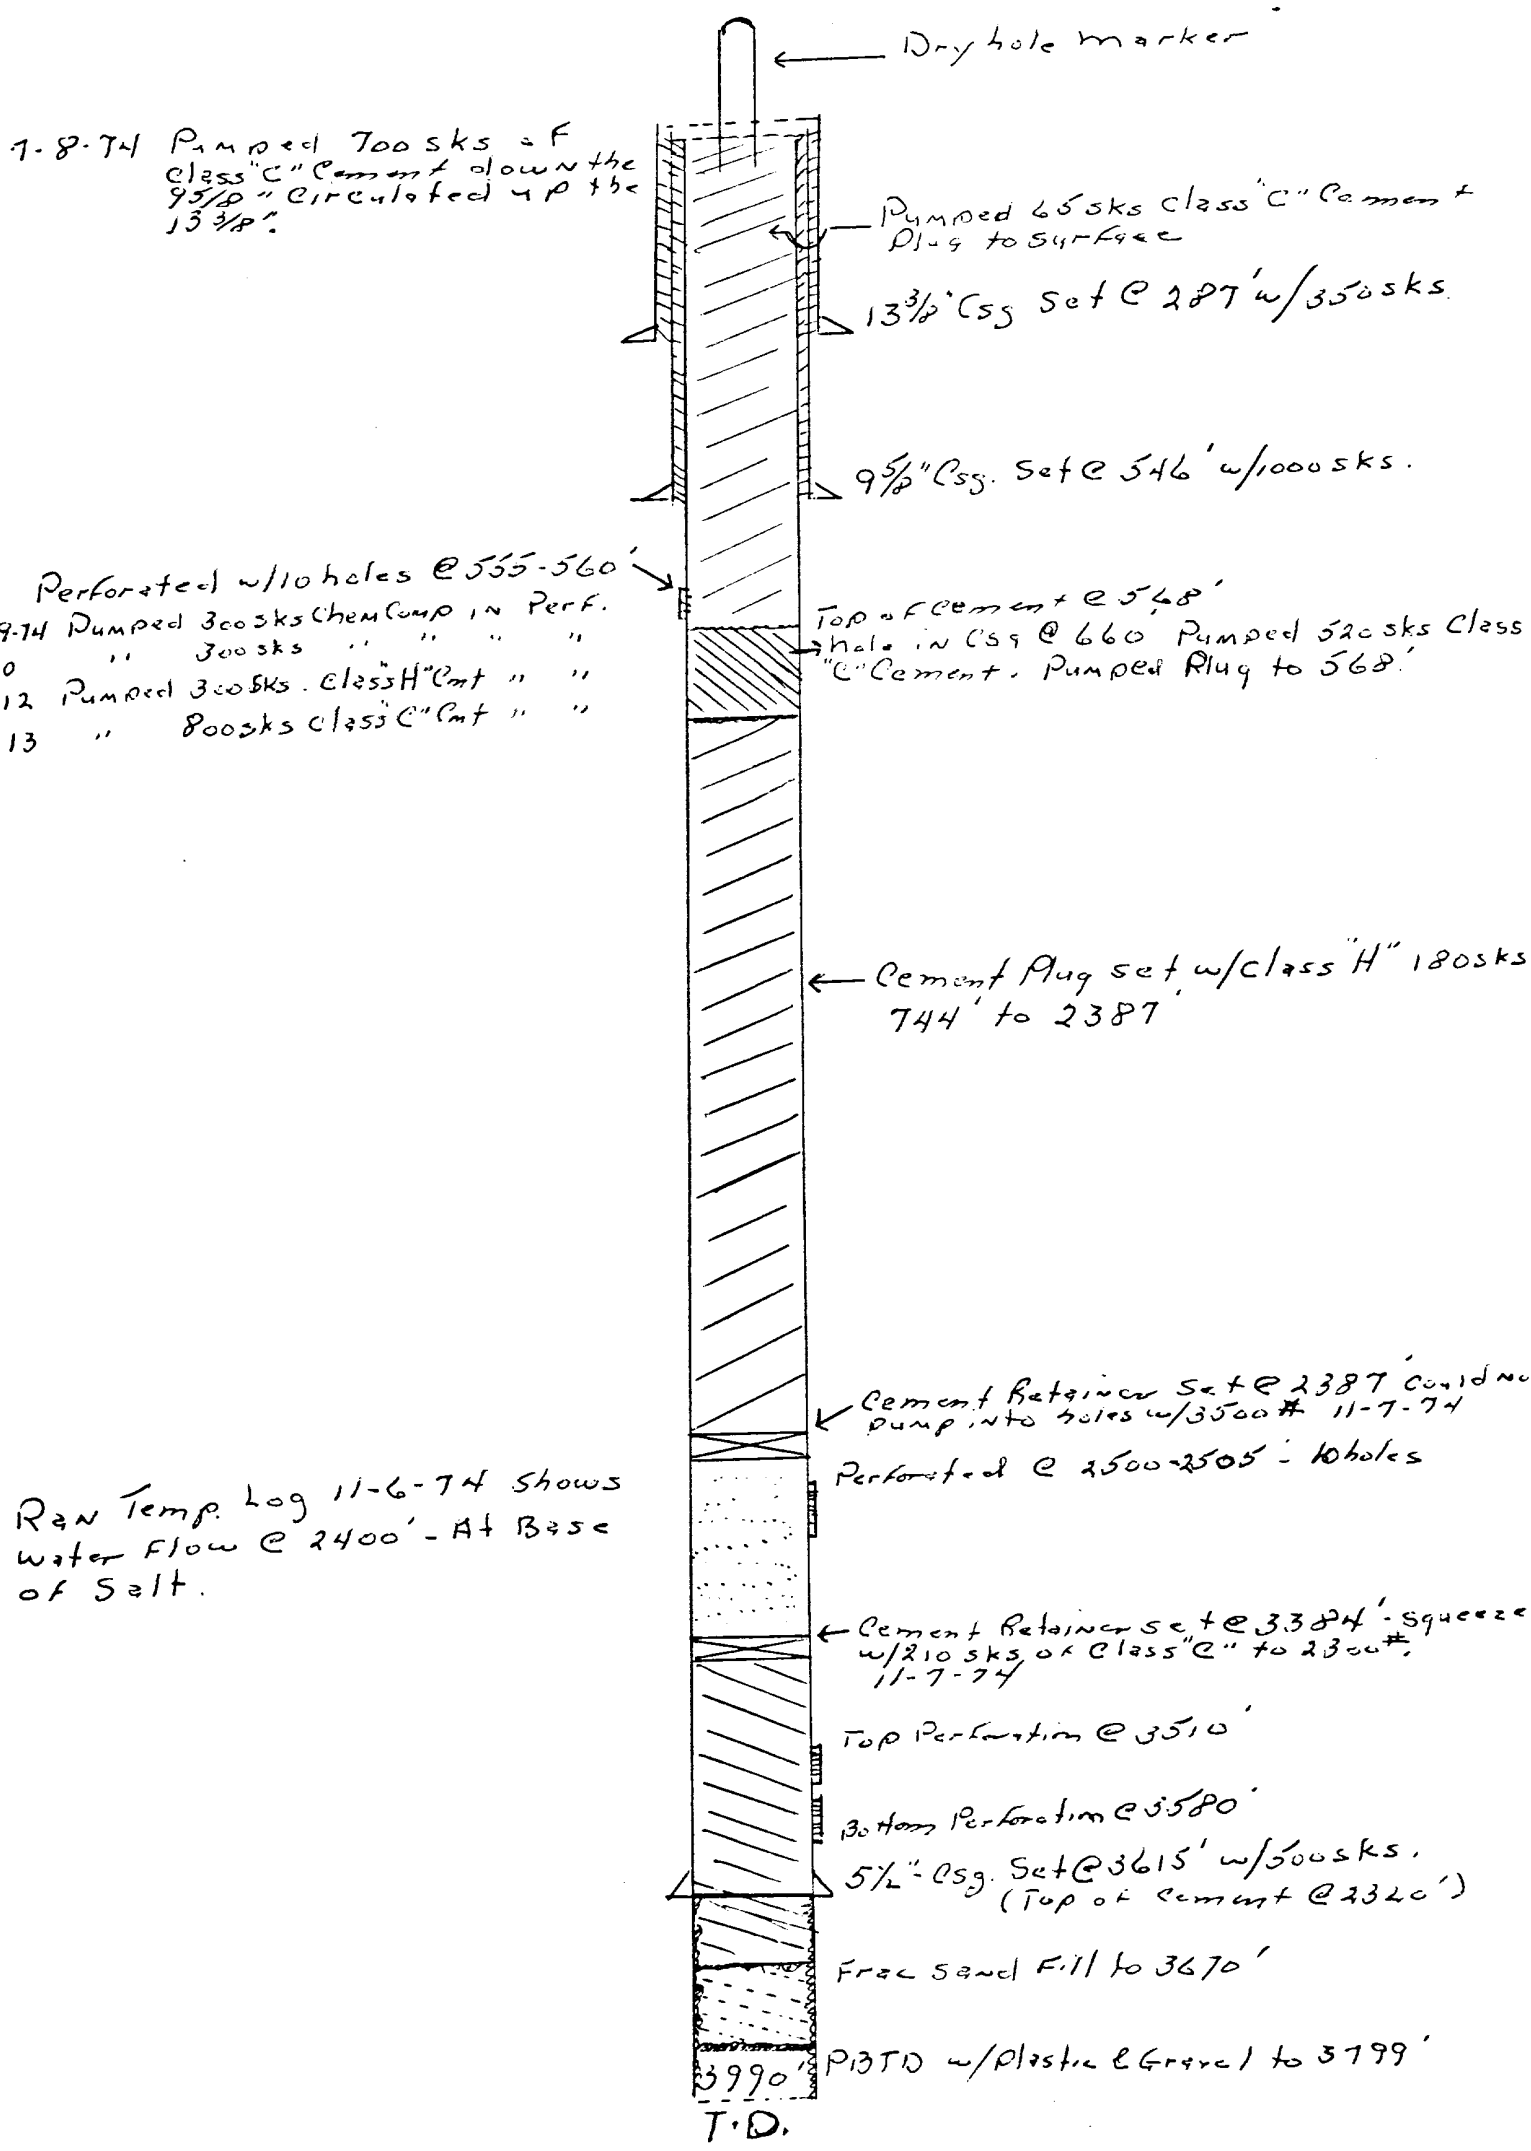 Dry hole marker
7-8-74 Pumped 700 sks of
Class "C" Cement down the
9 5/8" Circulated up the
13 3/8".
Pumped 65 sks Class "C" Cement
Plug to surface
13 3/8" Csg Set @ 287' w/350 sks
9 5/8" Csg. Set @ 546' w/1000 sks.
Perforated w/10 holes @ 555-560'
9-74 Pumped 300 sks ChemComp in Perf.
0 " 300 sks " " " "
12 Pumped 300 sks. Class "H" Cmt " "
13 " 800 sks Class "C" Cmt " "
Top of Cement @ 568'
hole in Csg @ 660' Pumped 520 sks Class
"C" Cement. Pumped Plug to 568'.
Cement Plug set w/Class "H" 180 sks
744' to 2387'
Cement Retainer Set @ 2387' could no
pump into holes w/3500# 11-7-74
Perforated @ 2500-2505' - 10 holes
Ran Temp. Log 11-6-74 Shows
Water Flow @ 2400' - At Base
of Salt.
Cement Retainer set @ 3384' - squeeze
w/210 sks of Class "C" to 2300#.
11-7-74
Top Perforation @ 3510'
Bottom Perforation @ 3580'
5 1/2" - Csg. Set @ 3615' w/500 sks.
(Top of Cement @ 2320')
Frac Sand Fill to 3670'
PBTD w/Plastic & Gravel to 3799'
3990'
T.D.